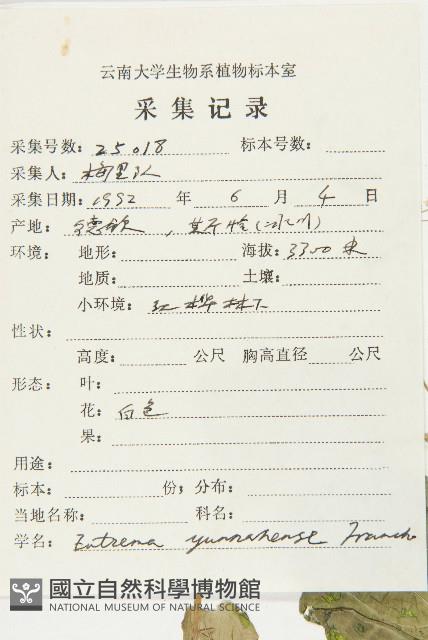 云南大学生物系植物标本室
采集记录
采集号数: 25018 标本号数:
采集人: 梅里队
采集日期: 1992 年 6 月 4 日
产地: 德钦, (冰川)
环境: 地形: 海拔: 3300 米
地质: 土壤:
小环境: 红桦林下
性状:
高度: 公尺 胸高直径 公尺
形态: 叶:
花: 白色
果:
用途:
标本: 份; 分布:
当地名称: 科名:
学名: Eutrema yunnanense Franch
國立自然科學博物館
NATIONAL MUSEUM OF NATURAL SCIENCE